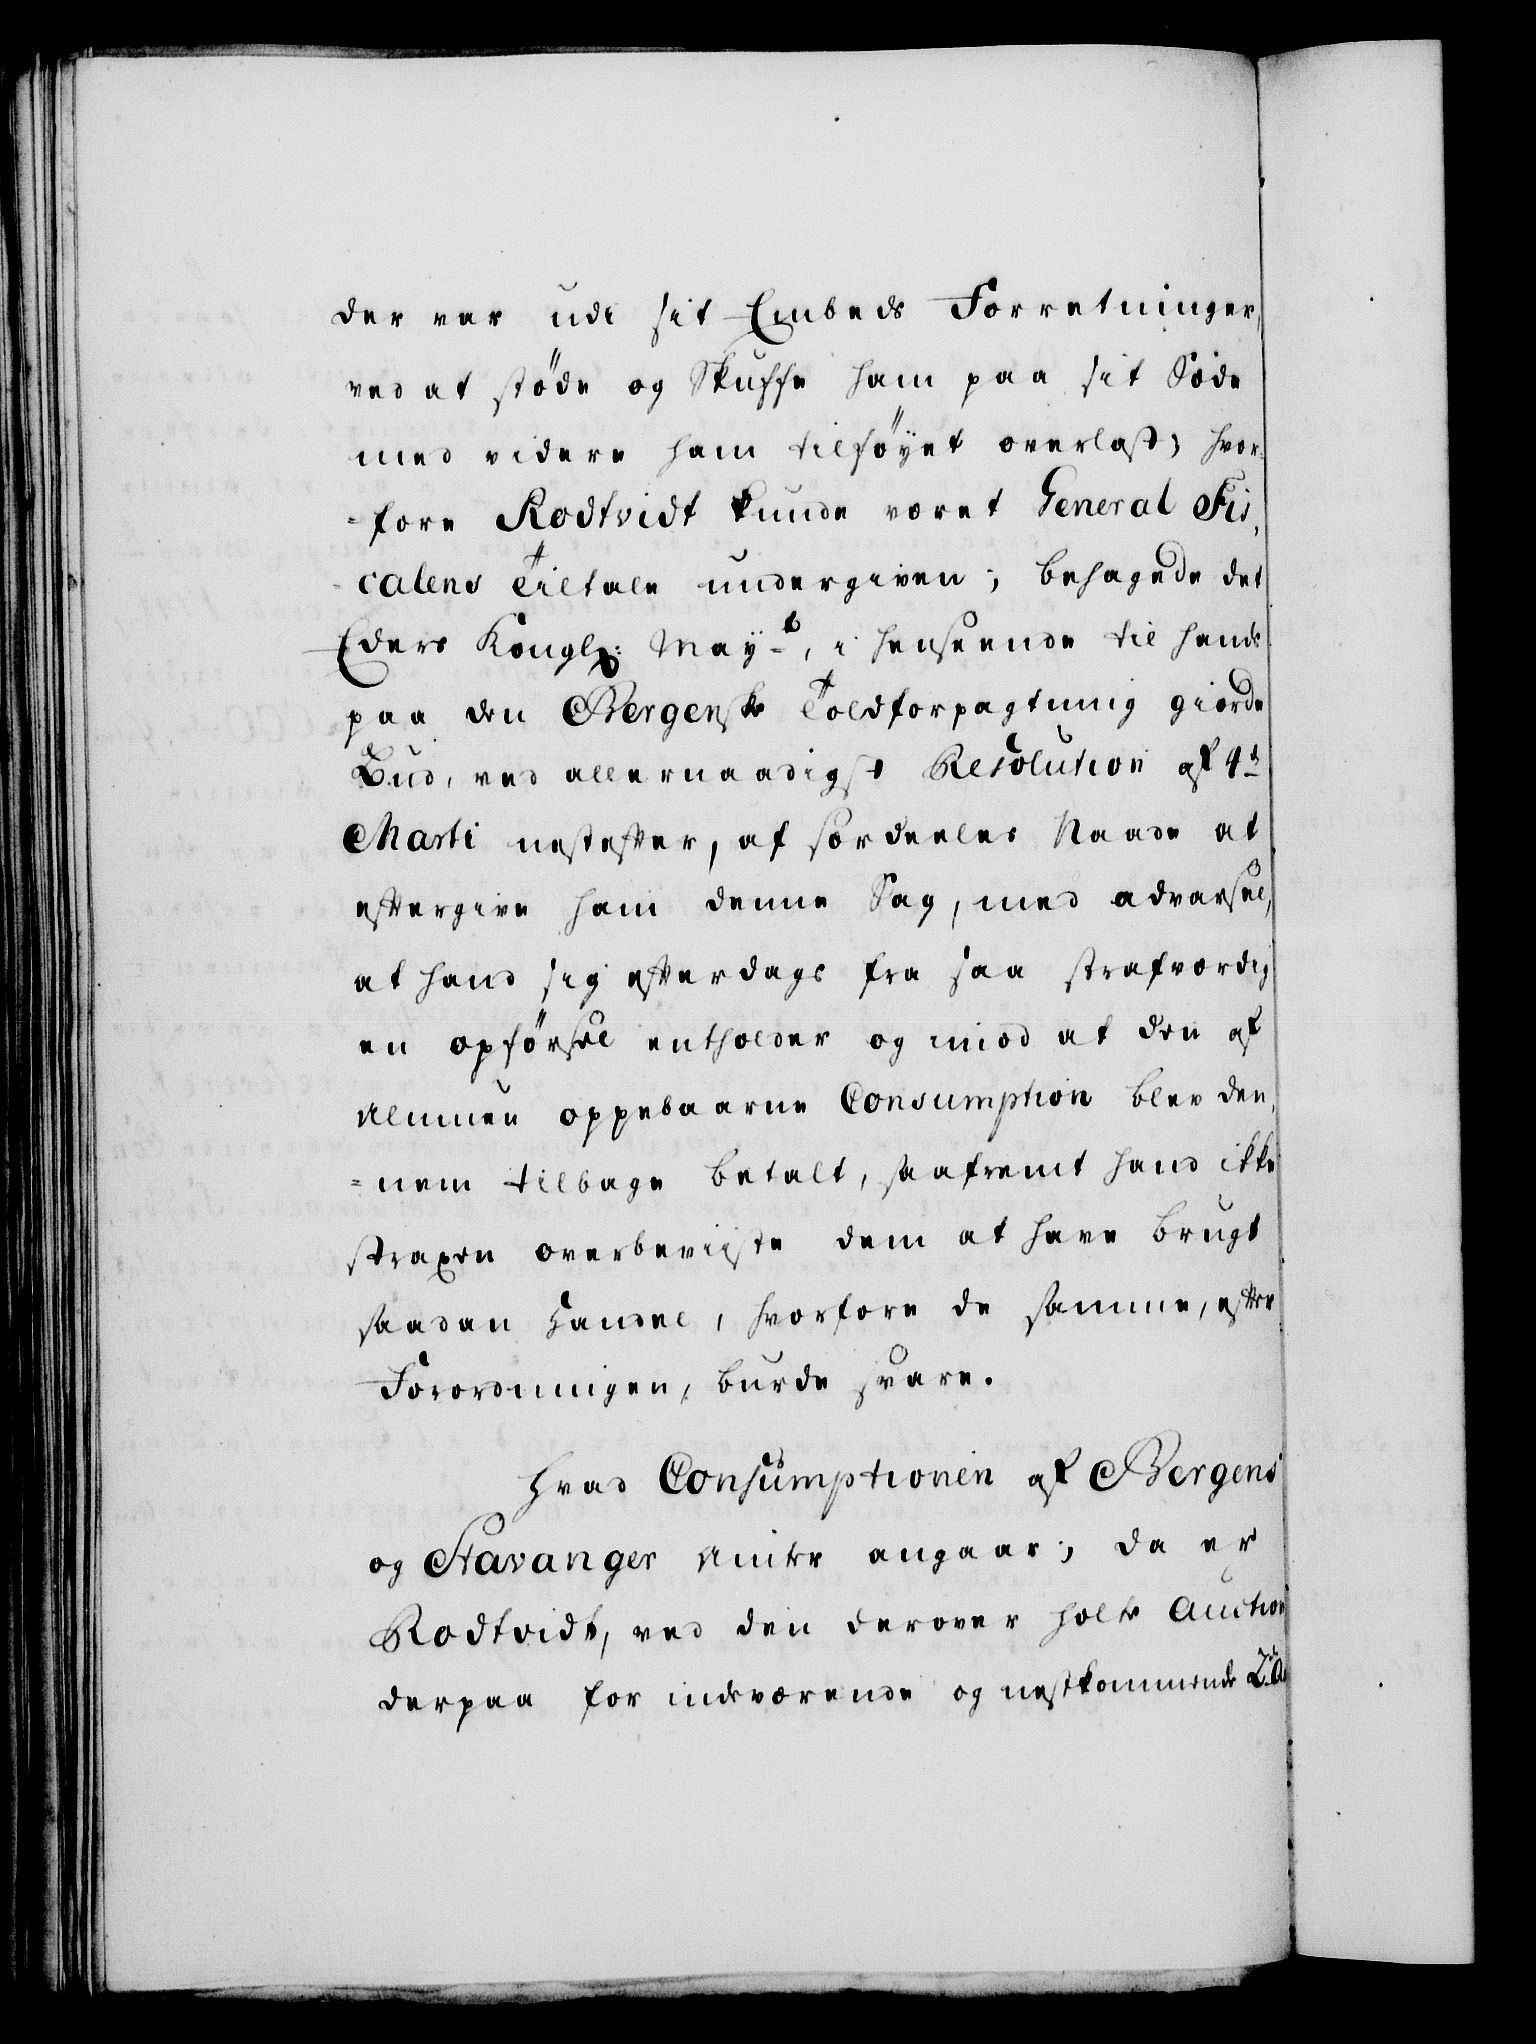 der var udi sit Embeds Forretninger,
ved at støde og Skuffe ham paa sit Søde
med videre ham tilføyet overlast; hvor-
=fore Rodtvidt kunde været General Fis,
calens Tiltale undergiven; behagede det
Eders Kongl: May=t, i henseende til hands
paa den Bergenske Toldforpagtning giorde
Bud, ved allernaadigst Resolution af 4de
Marti nestefter, af særdeeles Naade at
eftergive ham denne Sag, med advarsel,
at hand sig efterdags fra saa strafværdig
en opførsel entholder og imod at den af
Almuen oppebaarne Consumption blev den,
=nem tilbage betalt, saafremt hand ikke
straxen overbeviiste dem at have brugt
saadan Handel, hvorfore de samme, efter
Forordningen, burde svare.
Hvad Consumptionen af Bergens
og Stavanger Amter angaar; da er
Rodtvidt, ved den derover holte Auction
derpaa for indeværende og nestkommende